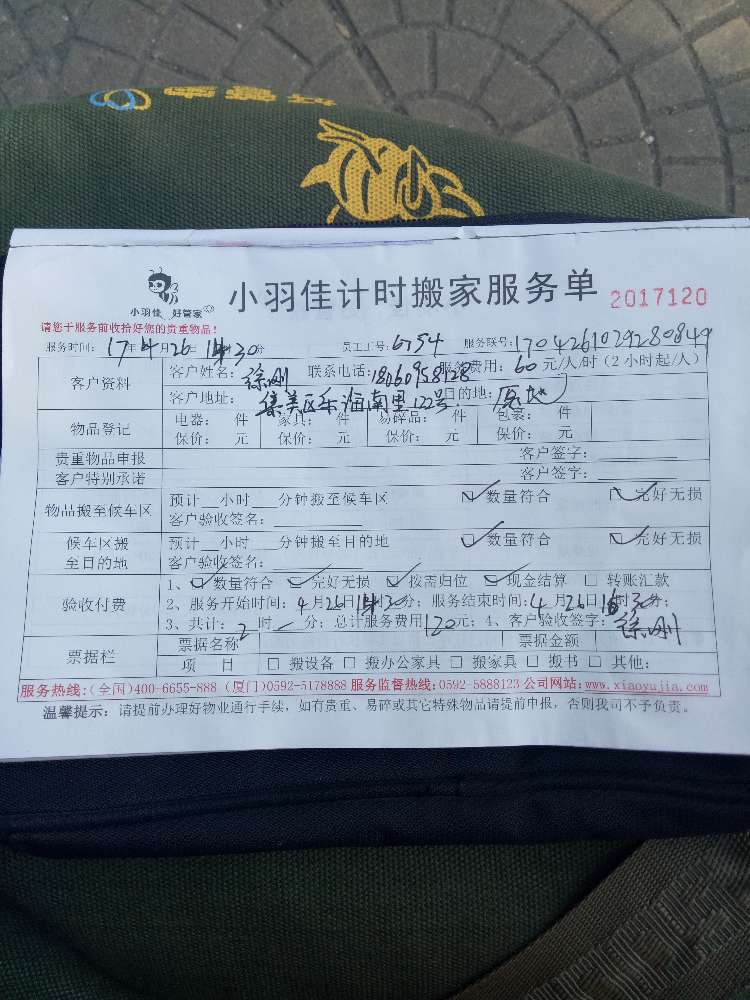 小羽佳 好管家
小羽佳计时搬家服务单 2017120
请您于服务前收拾好您的贵重物品!
服务时间: 17年4月26日 14时30分 员工工号: 6754 服务联号: 17042610292280849
客户资料 客户姓名: 徐刚 联系电话: 18060958128 服务费用: 60元/人/时(2小时起/人)
客户地址: 集美区乐海南里122号 目的地: 原地
物品登记 电器: 件 家具: 件 易碎品: 件 包裹: 件
保价: 元 保价: 元 保价: 元 保价: 元
贵重物品申报 客户签字:
客户特别承诺 客户签字:
物品搬至候车区 预计__小时__分钟搬至候车区 ☑数量符合 ☑完好无损
客户验收签名:
候车区搬至目的地 预计__小时__分钟搬至目的地 ☑数量符合 ☑完好无损
客户验收签名:
验收付费 1、☑数量符合 ☑完好无损 ☑按需归位 ☑现金结算 □转账汇款
2、服务开始时间: 4月26日14时30分; 服务结束时间: 4月26日16时30分;
3、共计: 2时/分; 总计服务费用120元; 4、客户验收签字: 徐刚
票据栏 票据名称 票据金额
项 目 □搬设备 □搬办公家具 □搬家具 □搬书 □其他:
服务热线:(全国)400-6655-888 (厦门)0592-5178888 服务监督热线:0592-5888123 公司网站:www.xiaoyujia.com
温馨提示: 请提前办理好物业通行手续,如有贵重、易碎或其它特殊物品请提前申报,否则我司不予负责。